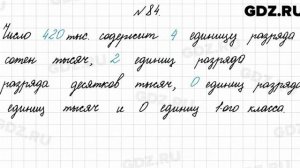 GDZ.RU
№84.
Число 420 тыс. содержит 4 единицу разряда
сотен тысяч, 2 единиц разряда
разряда десятков тысяч, 0 единиц разряда
единиц тысяч и 0 единиц 1ого класса